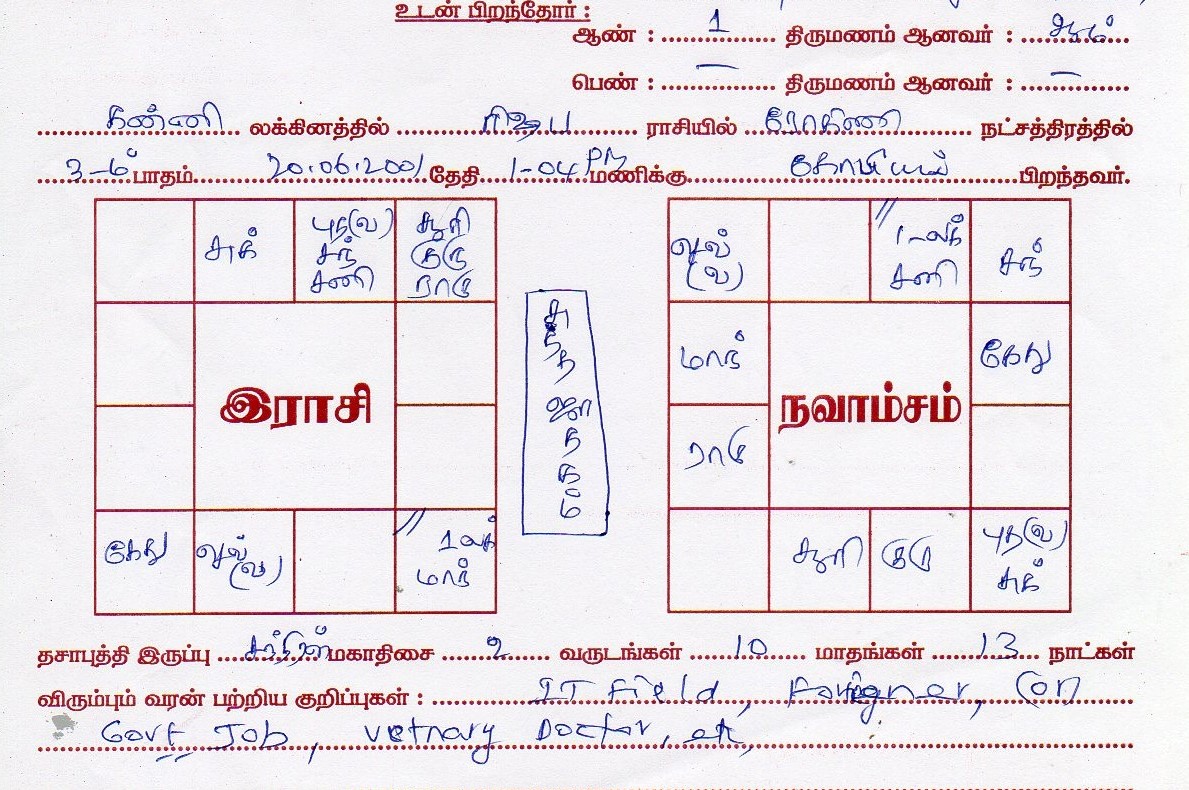 உடன் பிறந்தோர் :
ஆண் : 1 திருமணம் ஆனவர் : ஆம்
பெண் : — திருமணம் ஆனவர் : —
கன்னி லக்கினத்தில் ரிஷப ராசியில் ரோகிணி நட்சத்திரத்தில்
3-ம் பாதம் 20.06.2001 தேதி 1-04 PM மணிக்கு பிறந்தவர்.
சுக் புத(வ) சூரி
சந் குரு
சனி ராகு
இராசி
கேது செவ் 1லக்
(வ) மாந்
செவ் 1-லக் சந்
(வ) சனி
மாந் கேது
நவாம்சம்
ராகு
சூரி குரு புத(வ)
சுக்
தசாபுத்தி இருப்பு சந்திரன் மகாதிசை 2 வருடங்கள் 10 மாதங்கள் 13 நாட்கள்
விரும்பும் வரன் பற்றிய குறிப்புகள் : IT Field, Forigner, (or)
Govt Job, vetnary Doctor, etc,